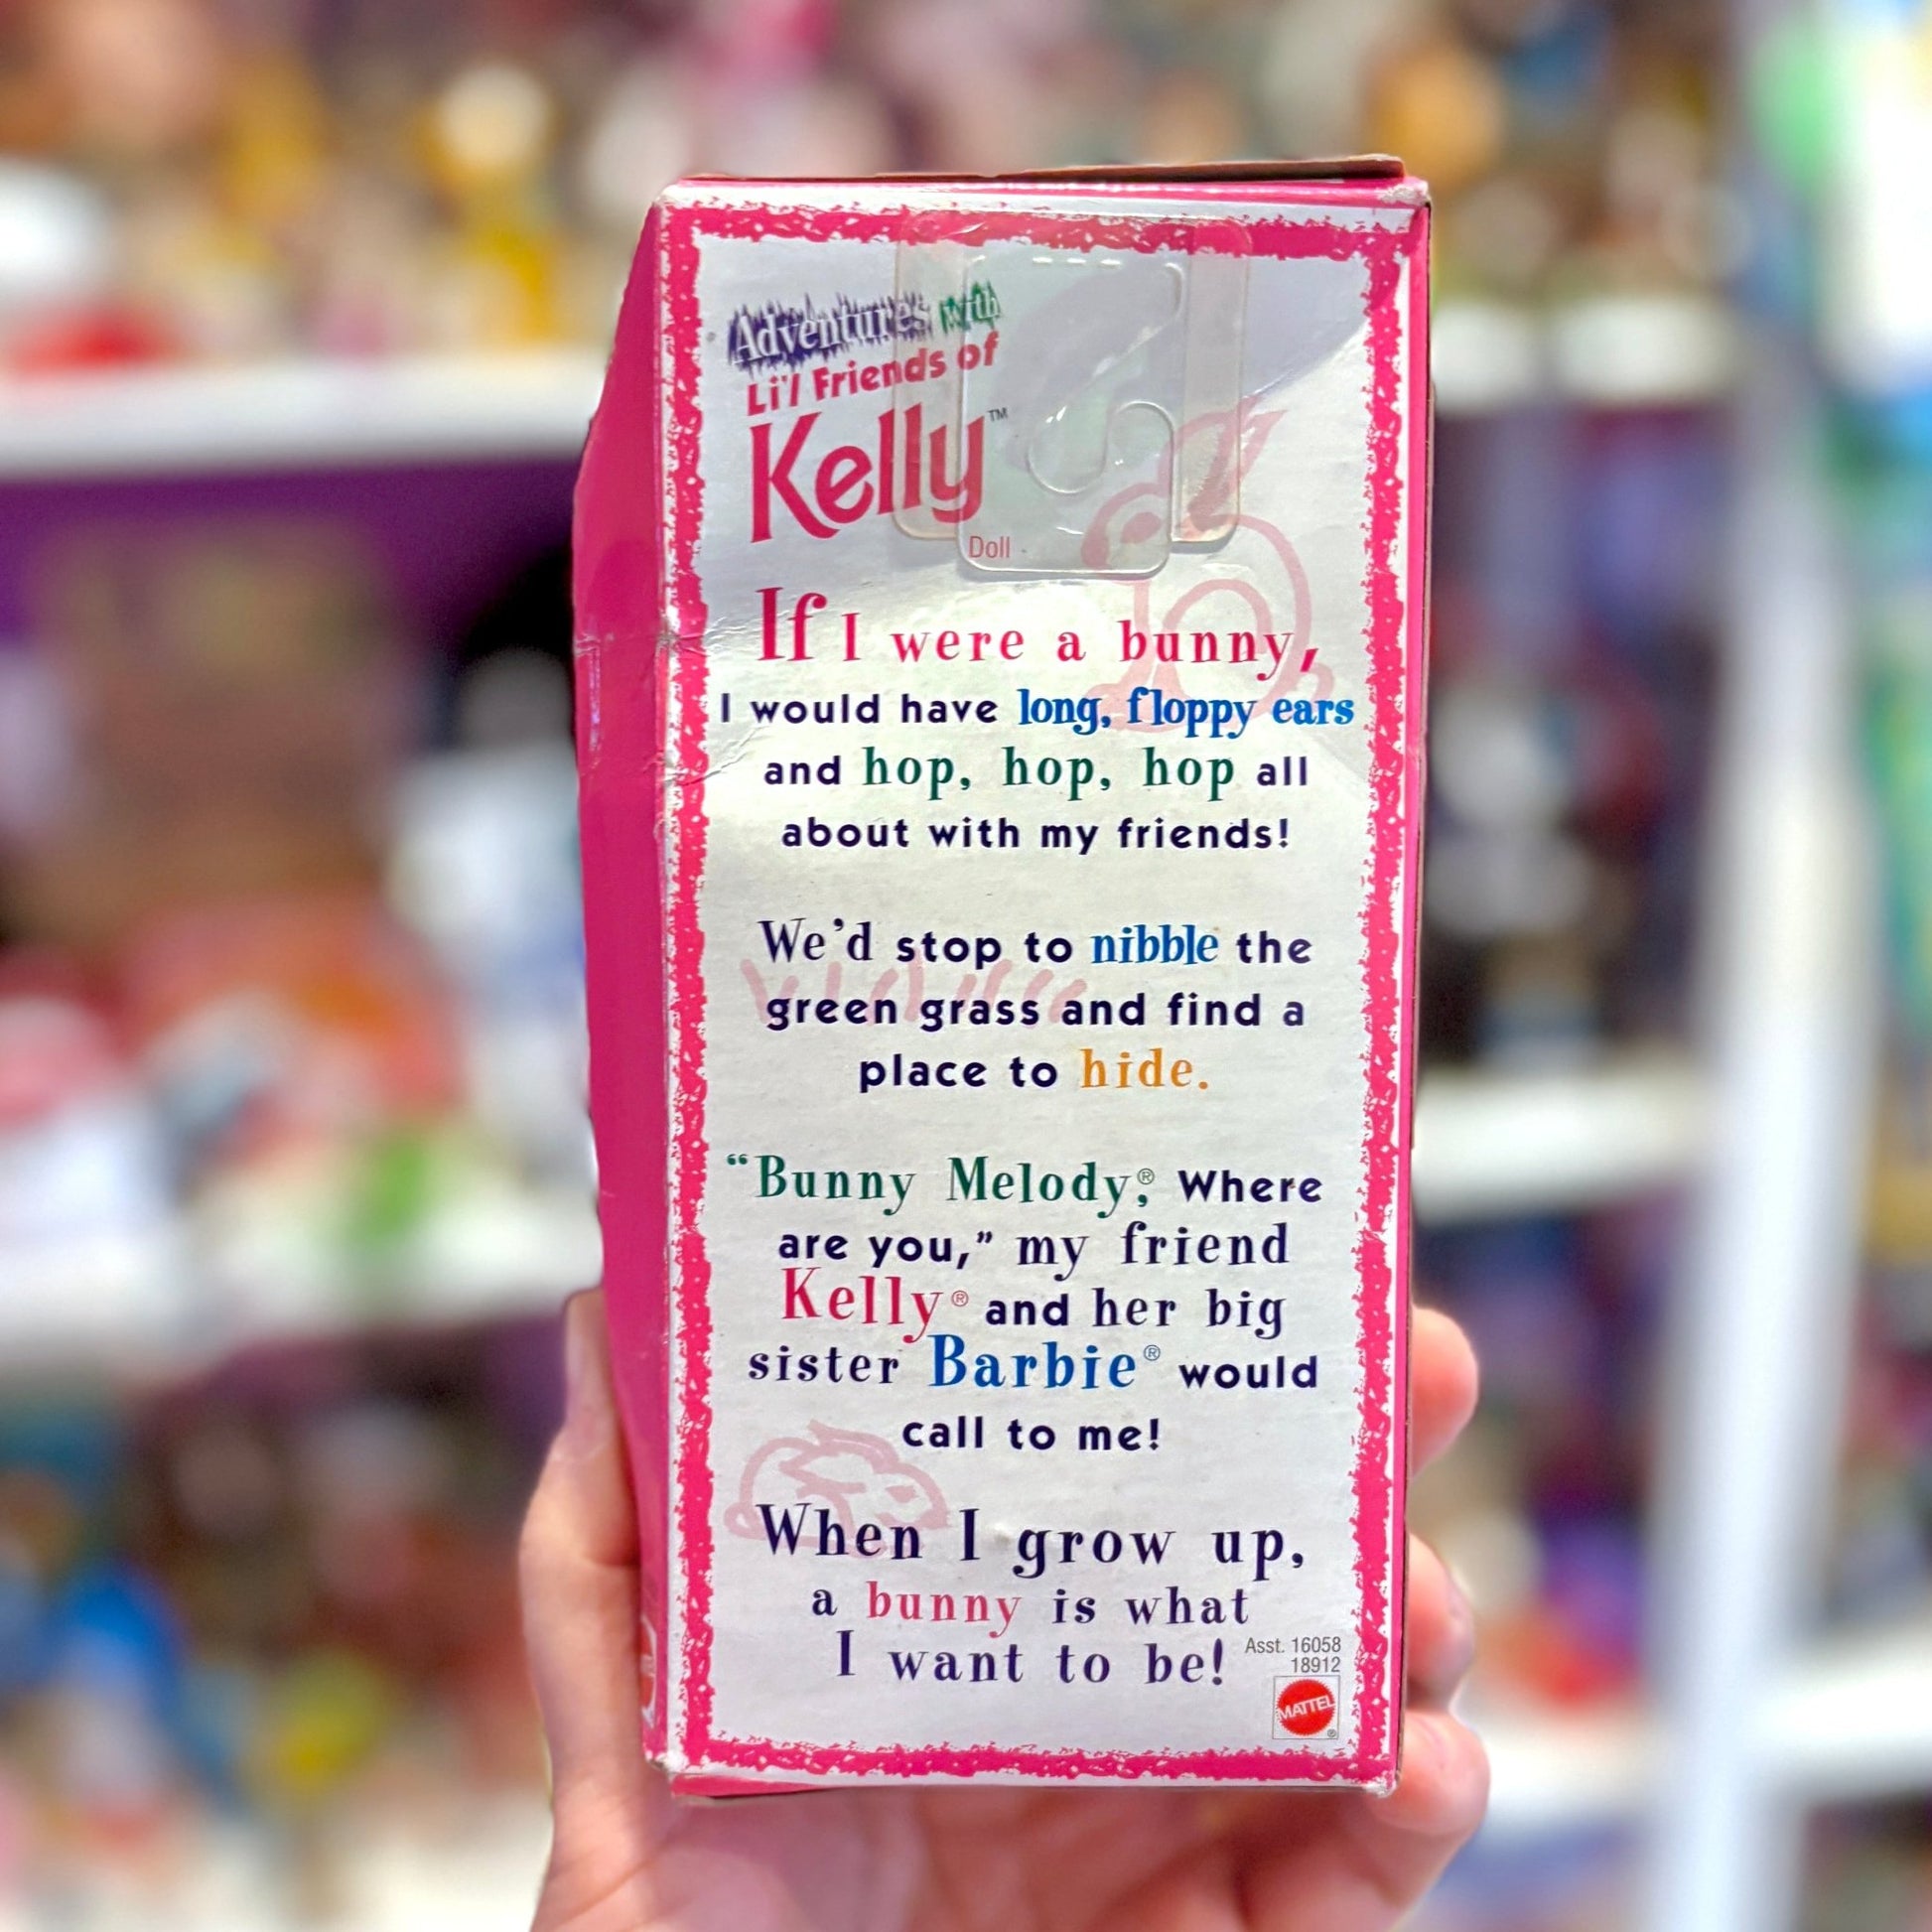 Adventures with
Li'l Friends of
Kelly™
Doll
If I were a bunny,
I would have long, floppy ears
and hop, hop, hop all
about with my friends!
We'd stop to nibble the
green grass and find a
place to hide.
“Bunny Melody,® Where
are you,” my friend
Kelly® and her big
sister Barbie® would
call to me!
When I grow up,
a bunny is what
I want to be!
Asst. 16058
18912
MATTEL®